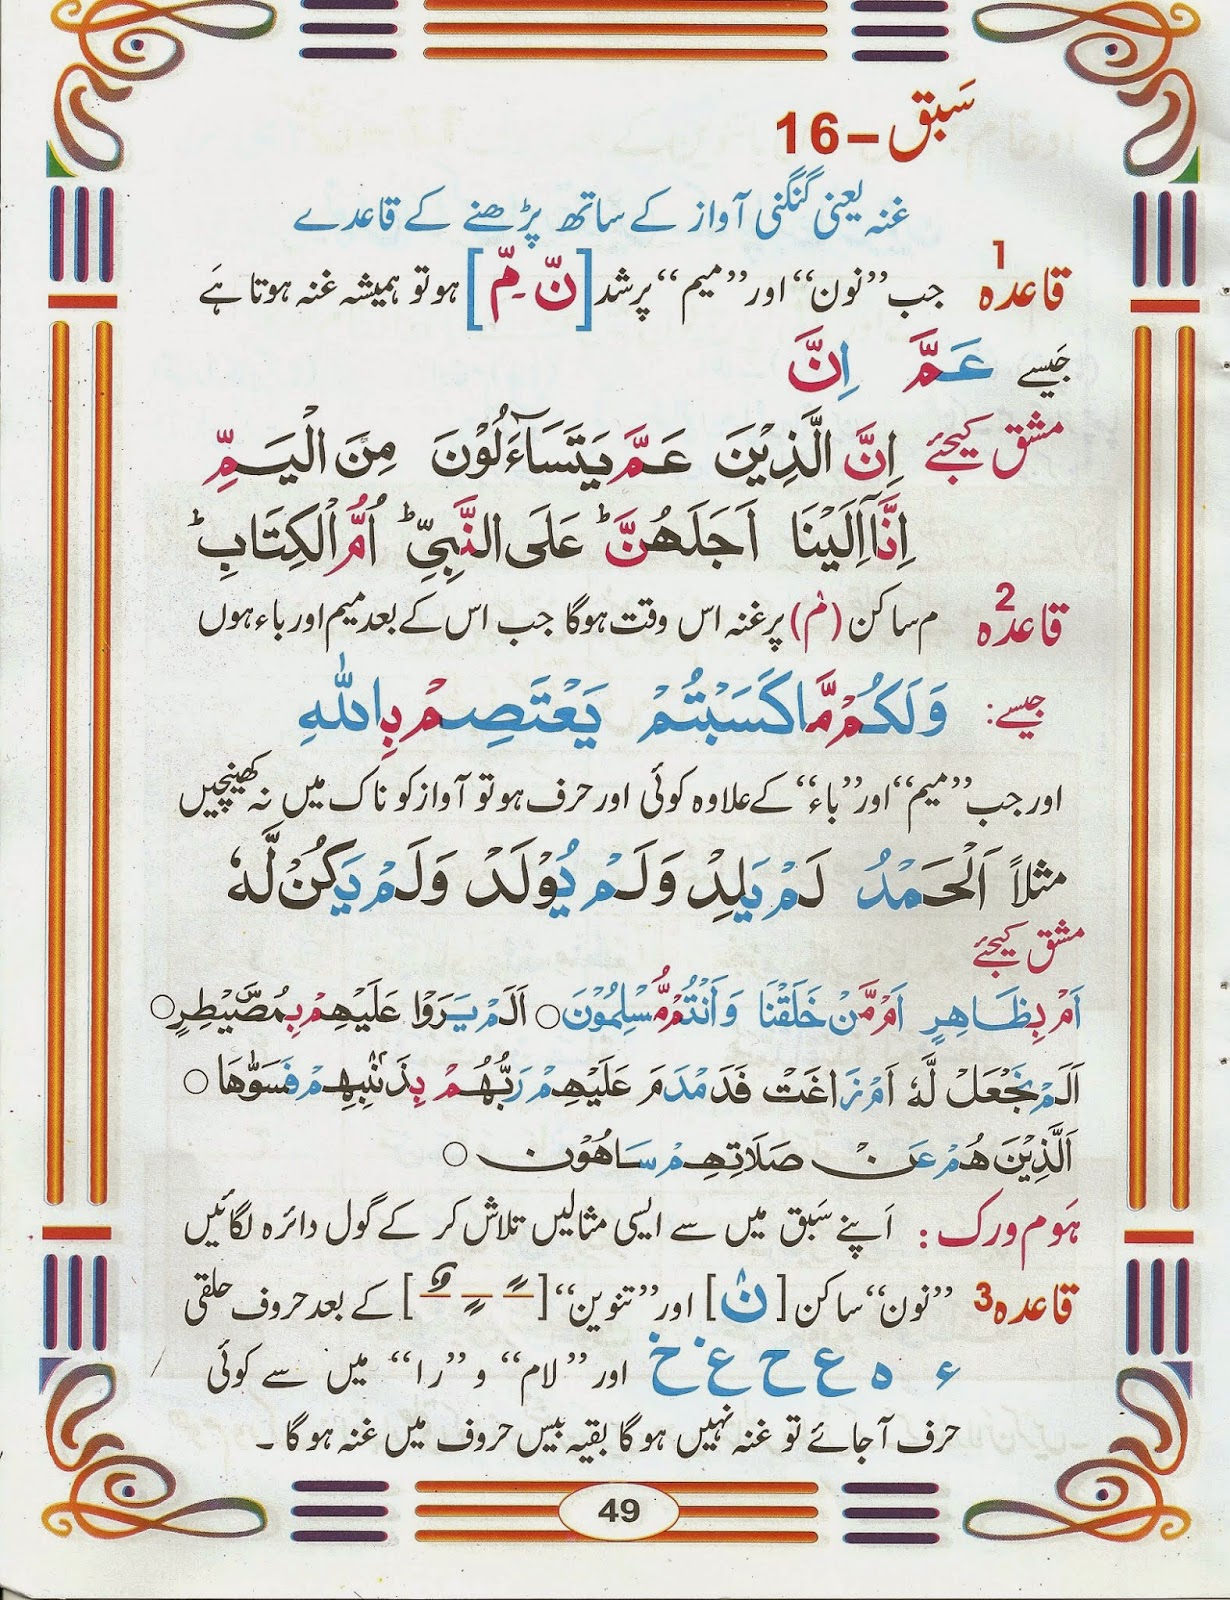 سَبق – 16
غنہ یعنی گنگنی آواز کے ساتھ پڑھنے کے قاعدے
قاعدہ 1 جب ”نون“ اور ”میم“ پر شد [نّ - مّ] ہو تو ہمیشہ غنہ ہوتا ہے
جیسے عَمَّ اِنَّ
مشق کیجئے اِنَّ الَّذِيْنَ عَمَّ يَتَسَآءَلُوْنَ مِنَ الْيَمِّ
اِنَّآ اِلَيْنَا اَجَلَهُنَّ ؕ عَلَى النَّبِيِّ ؕ اُمُّ الْكِتَابِ ؕ
قاعدہ 2 م ساکن (مْ) پر غنہ اس وقت ہوگا جب اس کے بعد میم اور باء ہوں
جیسے: وَلَكُمْ مَّا كَسَبْتُمْ يَعْتَصِمْ بِاللّٰهِ
اور جب ”میم“ اور ”باء“ کے علاوہ کوئی اور حرف ہو تو آواز کو ناک میں نہ کھینچیں
مثلاً اَلْحَمْدُ لَمْ يَلِدْ وَلَمْ يُوْلَدْ وَلَمْ يَكُنْ لَّهٗ
مشق کیجئے
اَمْ بِظَاهِرٍ اَمْ مَّنْ خَلَقْنَا وَاَنْتُمْ مُّسْلِمُوْنَ ○ اَلَمْ يَرَوْا عَلَيْهِمْ بِمُصَۜيْطِرٍ ○
اَلَمْ نَجْعَلْ لَّهٗ اَمْ زَاغَتْ فَدَمْدَمَ عَلَيْهِمْ رَبُّهُمْ بِذَنْۢبِهِمْ فَسَوّٰهَا ○
اَلَّذِيْنَ هُمْ عَنْ صَلَاتِهِمْ سَاهُوْنَ ○
ہوم ورک : اَپنے سَبق میں سے ایسی مثالیں تلاش کر کے گول دائرہ لگائیں
قاعدہ 3 ”نون“ ساکن [نْ] اور ”تنوین“ [ ًـ ٍـ ٌـ ] کے بعد حروف حلقی
ء ہ ع ح غ خ اور ”لام“ و ”را“ میں سے کوئی
حرف آ جائے تو غنہ نہیں ہوگا بقیہ بیس حروف میں غنہ ہوگا ۔
49